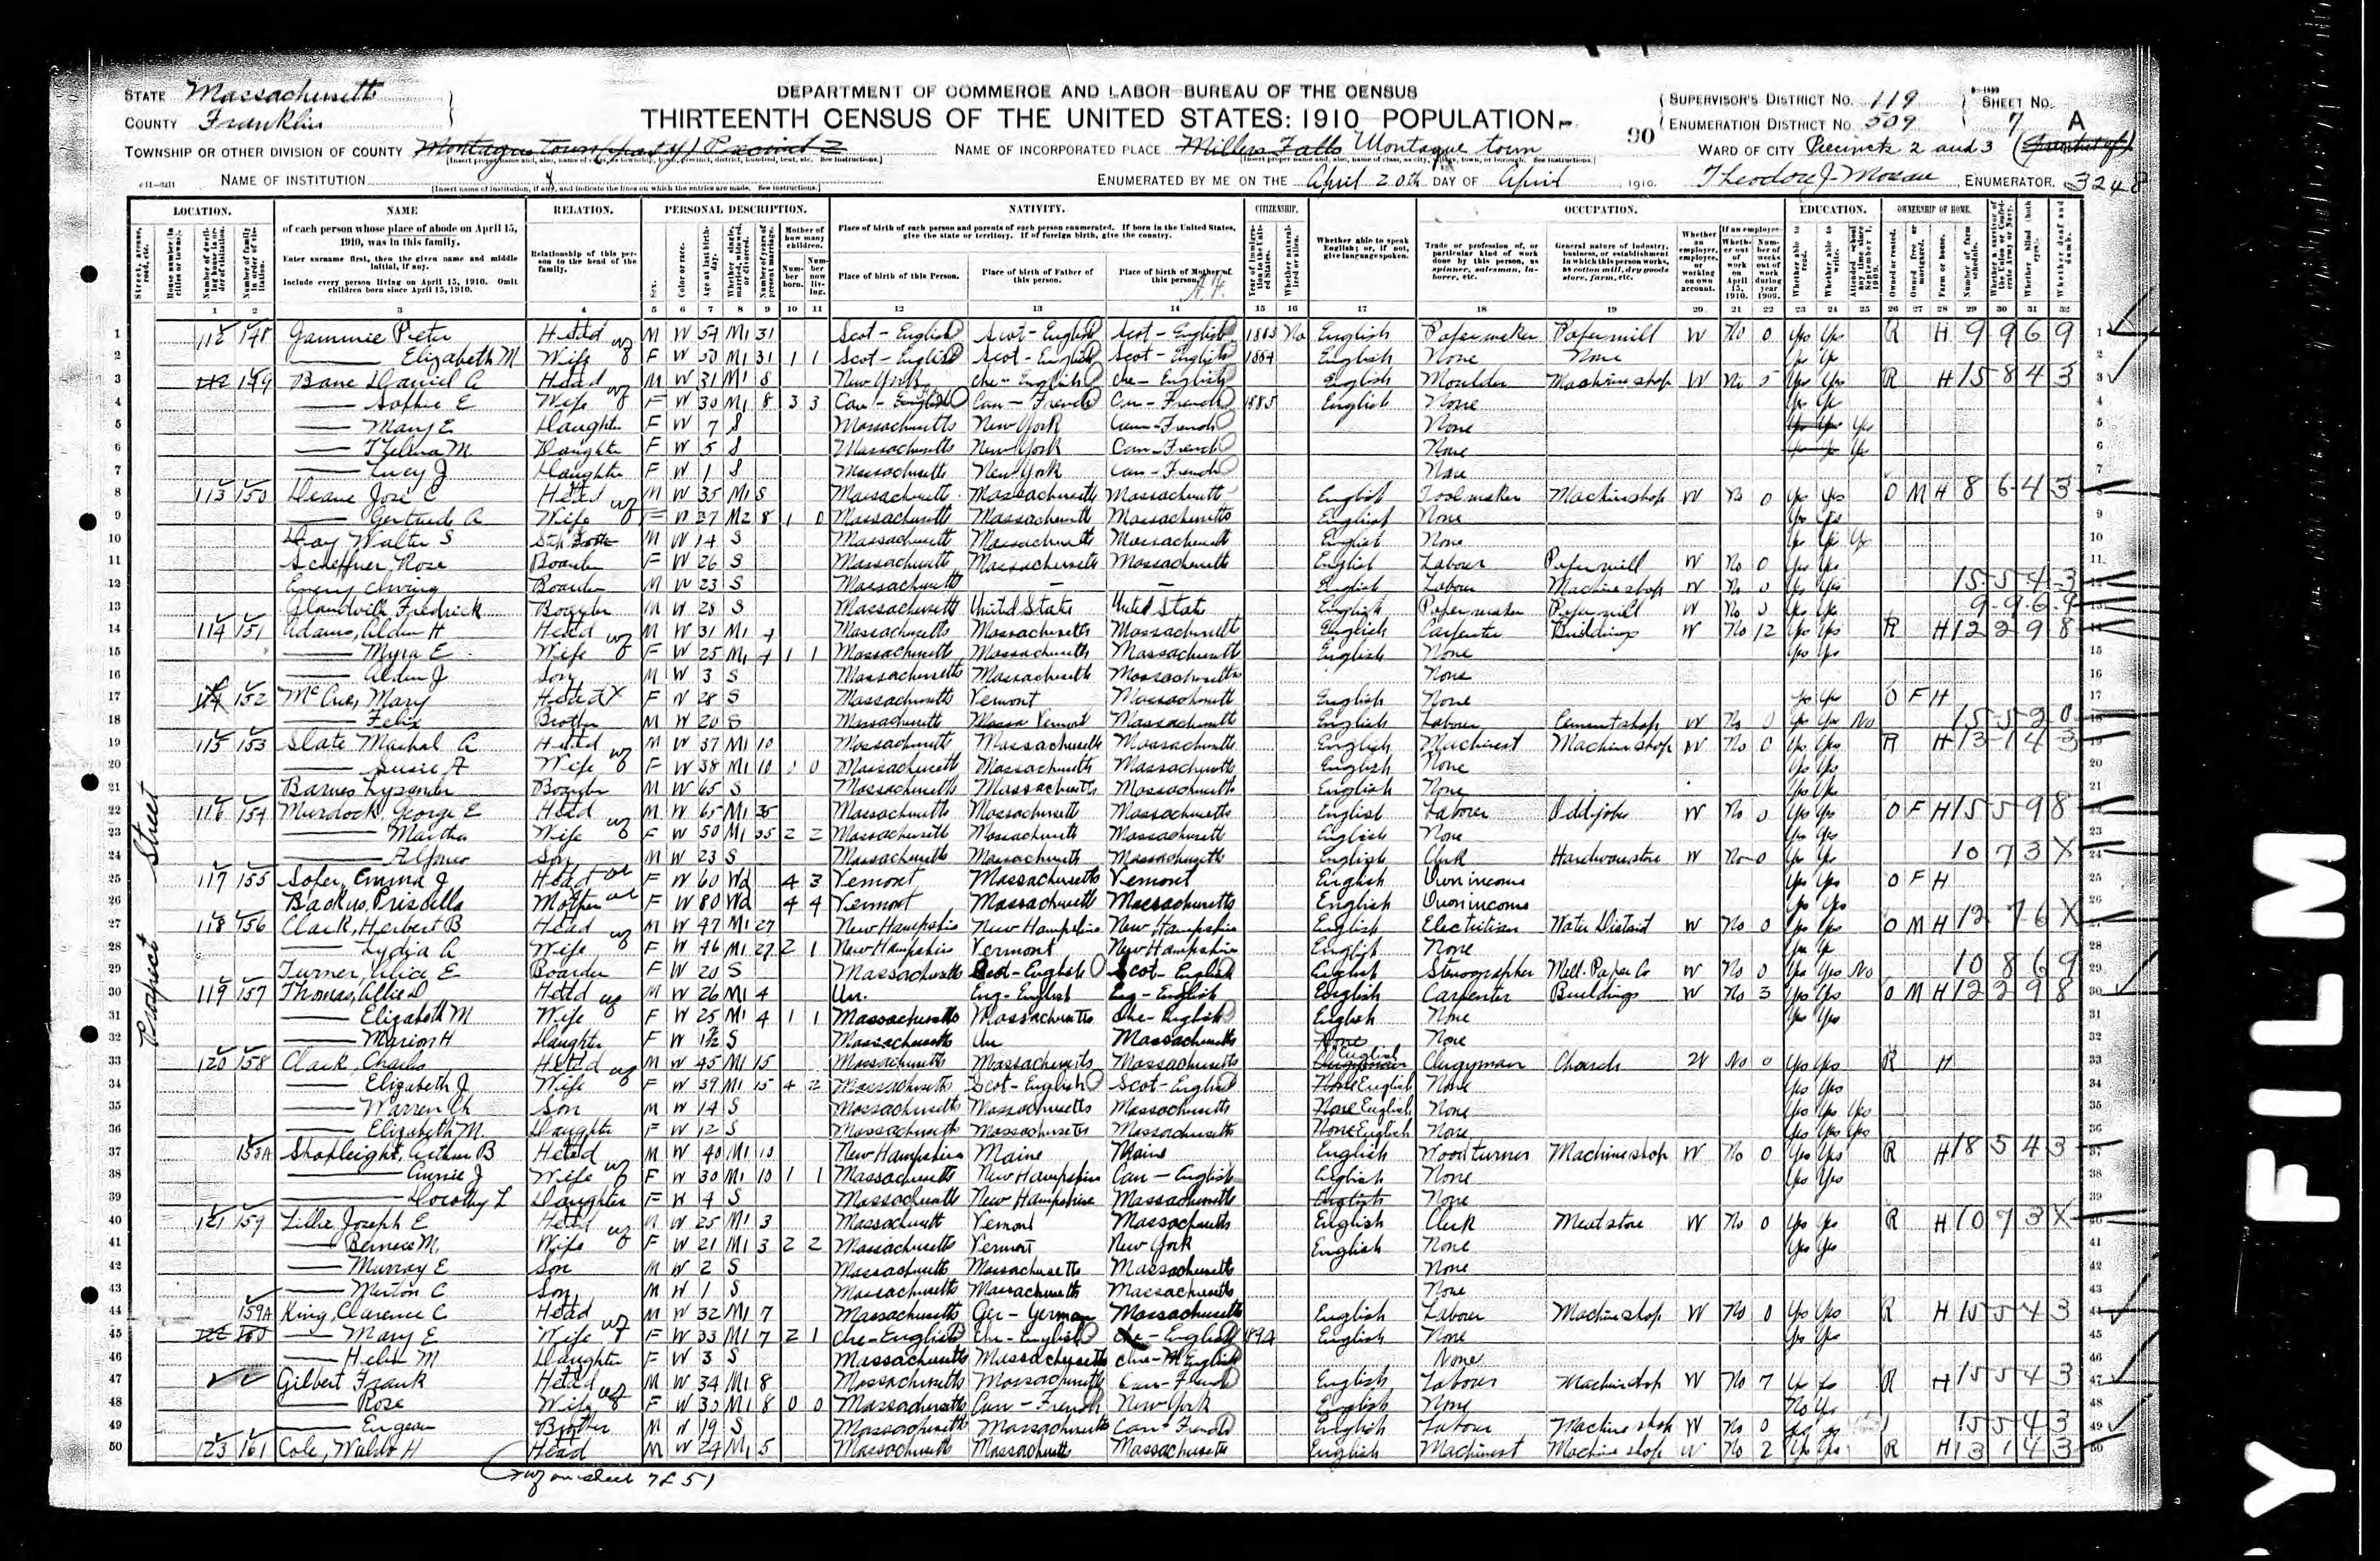 DEPARTMENT OF COMMERCE AND LABOR-BUREAU OF THE CENSUS
THIRTEENTH CENSUS OF THE UNITED STATES: 1910 POPULATION
STATE Massachusetts
COUNTY Franklin
TOWNSHIP OR OTHER DIVISION OF COUNTY Montague town Precinct 2
NAME OF INCORPORATED PLACE Millers Falls Montague town
NAME OF INSTITUTION X
ENUMERATED BY ME ON THE April 20th DAY OF April 1910.
SUPERVISOR'S DISTRICT No. 119
ENUMERATION DISTRICT No. 509
SHEET No. 7 A
WARD OF CITY Precinct 2 and 3
Theodore J. ENUMERATOR. 3248
90
LOCATION. NAME RELATION. PERSONAL DESCRIPTION. NATIVITY. CITIZENSHIP. OCCUPATION. EDUCATION. OWNERSHIP OF HOME.
of each person whose place of abode on April 15, 1910, was in this family.
Enter surname first, then the given name and middle initial, if any.
Include every person living on April 15, 1910. Omit children born since April 15, 1910.
Relationship of this person to the head of the family.
Place of birth of each person and parents of each person enumerated. If born in the United States, give the state or territory. If of foreign birth, give the country.
Place of birth of this Person. Place of birth of Father of this person. Place of birth of Mother of this person.
Whether able to speak English; or, if not, give language spoken.
Trade or profession of, or particular kind of work done by this person, as spinner, salesman, laborer, etc.
General nature of industry, business, or establishment in which this person works, as cotton mill, dry goods store, farm, etc.
1 2 3 4 5 6 7 8 9 10 11 12 13 14 15 16 17 18 19 20 21 22 23 24 25 26 27 28 29 30 31 32
Prospect Street
1 112 148 Gammie Peter Head M W 54 M1 31 Scot-English Scot-English Scot-English 1883 No English Papermaker Papermill W No 0 Yes Yes R H 9 9 6 9
2 Elizabeth M Wife F W 50 M1 31 1 1 Scot-English Scot-English Scot-English 1884 English None None
3 112 149 Bane Daniel A Head M W 31 M1 8 New York Ire-English Ire-English English Moulder Machine shop W No 5 Yes Yes R H 15 8 4 3
4 Sophie E Wife F W 30 M1 8 3 3 Can-English Can-French Can-French 1885 English None
5 Mary E Daughter F W 7 S Massachusetts New York Can-French None Yes Yes Yes
6 Thelma M Daughter F W 5 S Massachusetts New York Can-French None
7 Lucy J Daughter F W 1 S Massachusetts New York Can-French None
8 113 150 Deane Jose C Head M W 35 M1 8 Massachusetts Massachusetts Massachusetts English Toolmaker Machine shop W No 0 Yes Yes O M H 8 6 4 3
9 Gertrude A Wife F W 37 M2 8 1 0 Massachusetts Massachusetts Massachusetts English None Yes Yes
10 Day Walter S Step M W 14 S Massachusetts Massachusetts Massachusetts English None Yes Yes Yes
11 Scheffner, Rose Boarder F W 26 S Massachusetts Massachusetts Massachusetts English Labour Papermill W No 0 Yes Yes
12 Emery Irving Boarder M W 23 S Massachusetts English Labour Machine shop W No 0 Yes Yes 15 5 4 3
13 Glandvill Fredrick Boarder M W 28 S Massachusetts United States United States English Papermaker Papermill W No 0 Yes Yes 9 9 6 9
14 114 151 Adams, Alden H Head M W 31 M1 4 Massachusetts Massachusetts Massachusetts English Carpenter Buildings W No 12 Yes Yes R H 12 2 9 8
15 Myra E Wife F W 25 M1 4 1 1 Massachusetts Massachusetts Massachusetts English None Yes Yes
16 Alden J Son M W 3 S Massachusetts Massachusetts Massachusetts None
17 114 152 McCue, Mary Head F W 28 S Massachusetts Vermont Massachusetts English None Yes Yes O F H
18 Felix Brother M W 20 S Massachusetts Massa Vermont Massachusetts English Labour Cement shop W No 0 Yes Yes No 15 5 2 0
19 115 153 Slate Machal A Head M W 37 M1 10 Massachusetts Massachusetts Massachusetts English Machinest Machine shop W No 0 Yes Yes R H 13 1 4 3
20 Susie F Wife F W 38 M1 10 0 0 Massachusetts Massachusetts Massachusetts English None Yes Yes
21 Barnes Lysander Boarder M W 65 S Massachusetts Massachusetts Massachusetts English None Yes Yes
22 116 154 Murdock, George E Head M W 65 M1 35 Massachusetts Massachusetts Massachusetts English Laborer Odd jobs W No 0 Yes Yes O F H 15 5 9 8
23 Martha Wife F W 50 M1 35 2 2 Massachusetts Massachusetts Massachusetts English None Yes Yes
24 Son M W 23 S Massachusetts Massachusetts Massachusetts English Clerk Hardware store W No 0 Yes Yes 10 7 3 X
25 117 155 Soper, Emma J Head F W 60 Wd 4 3 Vermont Massachusetts Vermont English Own income Yes Yes O F H
26 Backus, Priscilla Mother F W 80 Wd 4 4 Vermont Massachusetts Massachusetts English Own income Yes Yes
27 118 156 Clark, Herbert B Head M W 47 M1 27 New Hampshire New Hampshire New Hampshire English Electritian Water District W No 0 Yes Yes O M H 12 7 6 X
28 Lydia A Wife F W 46 M1 27 2 1 New Hampshire Vermont New Hampshire English None Yes Yes
29 Turner, Alice E Boarder F W 20 S Massachusetts Scot-English Scot-English English Stenographer Mill. Paper Co W No 0 Yes Yes No 10 8 6 9
30 119 157 Thomas, Allie D Head M W 26 M1 4 Un. Eng-English Eng-English English Carpenter Buildings W No 3 Yes Yes O M H 12 2 9 8
31 Elizabeth M Wife F W 25 M1 4 1 1 Massachusetts Massachusetts Ire-English English None Yes Yes
32 Marion H Daughter F W S Massachusetts Un Massachusetts None None
33 120 158 Clark, Charles Head M W 45 M1 15 Massachusetts Massachusetts Massachusetts English Clergyman Church W No 0 Yes Yes R H
34 Elizabeth J Wife F W 39 M1 15 4 2 Massachusetts Scot-English Scot-English None English None Yes Yes
35 Warren Ch Son M W 14 S Massachusetts Massachusetts Massachusetts None English None Yes Yes Yes
36 Elizabeth M. Daughter F W 12 S Massachusetts Massachusetts Massachusetts None English None Yes Yes Yes
37 158A Shapleight, Arthur B Head M W 40 M1 10 New Hampshire Maine Maine English Wood turner Machine shop W No 0 Yes Yes R H 18 5 4 3
38 Annie J Wife F W 30 M1 10 1 1 Massachusetts New Hampshire Can-English English None Yes Yes
39 Dorothy L Daughter F W 4 S Massachusetts New Hampshire Massachusetts English None
40 121 159 Lillie Joseph E Head M W 25 M1 3 Massachusetts Vermont Massachusetts English Clerk Meat store W No 0 Yes Yes R H 10 7 3 X
41 Bernice M. Wife F W 21 M1 3 2 2 Massachusetts Vermont New York English None Yes Yes
42 Murray E Son M W 2 S Massachusetts Massachusetts Massachusetts None
43 Merton C Son M W 1 S Massachusetts Massachusetts Massachusetts None
44 159A King, Clarence C Head M W 32 M1 7 Massachusetts Ger-German Massachusetts English Labour Machine shop W No 0 Yes Yes R H 15 5 4 3
45 122 160 Mary E Wife F W 33 M1 7 2 1 Ire-English Ire-English Ire-English 1894 English None Yes Yes
46 Helen M Daughter F W 3 S Massachusetts Massachusetts Ire-English None
47 Gilbert Frank Head M W 34 M1 8 Massachusetts Massachusetts Can-French English Labour Machine shop W No 7 Yes Yes R H 15 5 4 3
48 Rose Wife F W 30 M1 8 0 0 Massachusetts Can-French New York English None No Yes
49 Eugean Brother M W 19 S Massachusetts Massachusetts Can-French English Labour Machine shop W No 0 15 5 4 3
50 123 161 Cole, Waldo H Head M W 24 M1 5 Massachusetts Massachusetts Massachusetts English Machinest Machine shop W No 2 Yes Yes R H 13 1 4 3
wf on sheet 7 L 51
Y FILM